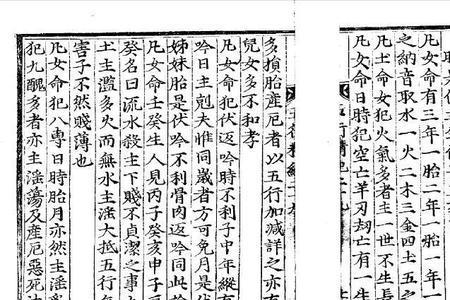 凡女命有三年一胎二年一胎一年一
之納音取水一火二木三金四土五之
凡土命女犯火氣多者主一世不生長
凡女命日時犯空亡羊刃刼亡有一生
五行精紀
多損胎產厄者以五行加減詳之亦有
兒女多不和孝
凡女命犯伏返吟時不利子中年縱有
吟日主剋夫惟同歲者方可免月是伏
姊妹胎是伏吟不利骨肉返吟同此於
凡女命壬癸生人見丙子癸亥申子
癸名曰流水殺主下賤不貞潔之事
土主濫多火而無水主滛大抵五行
害子不然賤薄也
凡女命犯八專日時胎月亦然主滛
犯九醜多者亦主滛蕩及產厄惡死